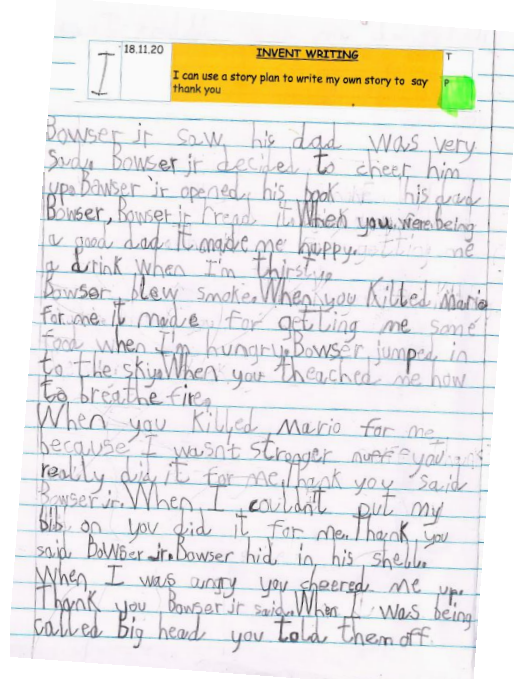 I
18.11.20
INVENT WRITING
T
I can use a story plan to write my own story to say
P
thank you
Bowser jr saw his dad was very
Sad. Bowser jr decided to cheer him
up. Bowser jr opened his book his dad
Bowser, Bowser jr read it. When you were being
a good dad it made me happy. getting me
a drink when I'm thirsty.
Bowser blew smoke. When you Killed Mario
for me it made for getting me some
food when I'm hungry. Bowser jumped in
to the sky. When you theached me how
to breathe fire.
When you Killed Mario for me
because I wasnt stronger you
really did it for me. thank you said
Bowser jr. When I couldn't put my
bib on you did it for me. Thank you
said Bowser jr. Bowser hid in his shell.
When I was angry you cheered me up.
Thank you Bowser jr said. When I was being
called Big head you told them off